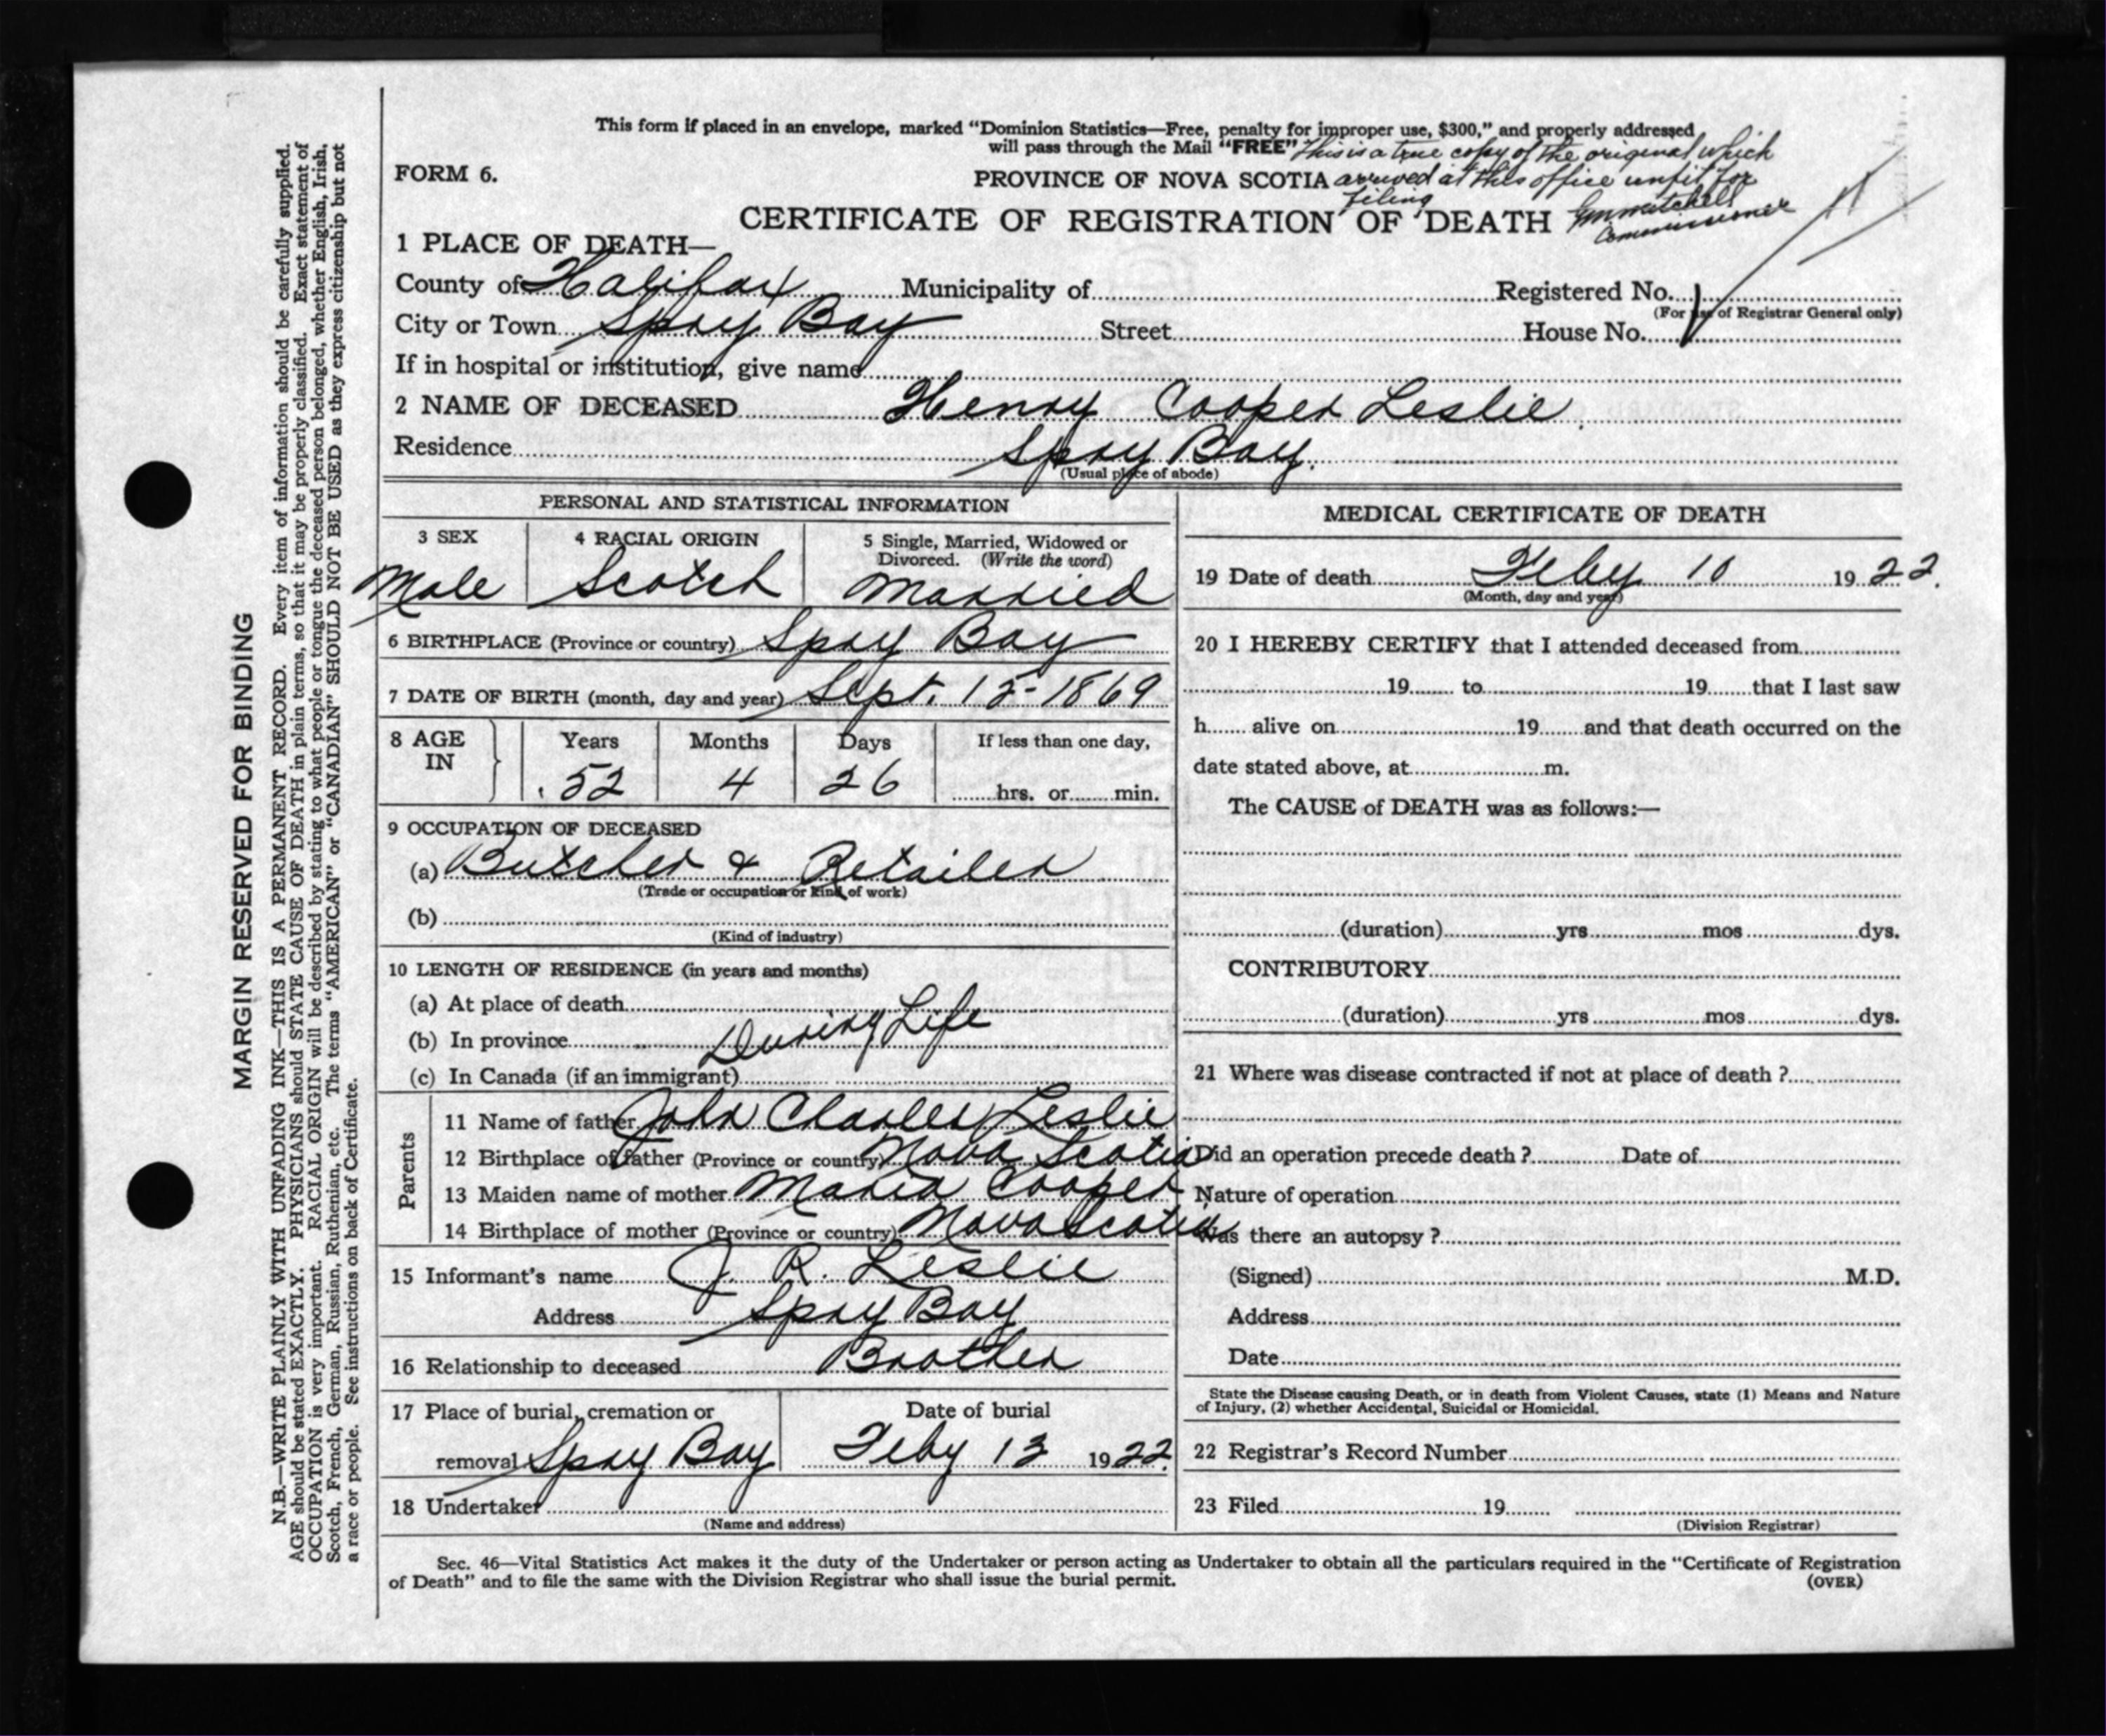 This form if placed in an envelope, marked "Dominion Statistics—Free, penalty for improper use, $300," and properly addressed
will pass through the Mail "FREE" This is a true copy of the original which
FORM 6.
PROVINCE OF NOVA SCOTIA arrived at this office unfit for
filing
CERTIFICATE OF REGISTRATION OF DEATH Mitchell
Commissioner
1 PLACE OF DEATH—
County of Halifax Municipality of Registered No.
(For use of Registrar General only)
City or Town Spry Bay Street House No.
If in hospital or institution, give name
2 NAME OF DECEASED Henry Cooper Leslie
Residence Spry Bay.
(Usual place of abode)
PERSONAL AND STATISTICAL INFORMATION
3 SEX 4 RACIAL ORIGIN 5 Single, Married, Widowed or
Divorced. (Write the word)
Male Scotch Married
6 BIRTHPLACE (Province or country) Spry Bay
7 DATE OF BIRTH (month, day and year) Sept. 15-1869
8 AGE IN Years Months Days If less than one day,
52 4 26 hrs. or min.
9 OCCUPATION OF DECEASED
(a) Butcher & Retailer
(Trade or occupation or kind of work)
(b)
(Kind of industry)
10 LENGTH OF RESIDENCE (in years and months)
(a) At place of death
(b) In province During Life
(c) In Canada (if an immigrant)
Parents
11 Name of father John Charles Leslie
12 Birthplace of father (Province or country) Nova Scotia
13 Maiden name of mother Maria Cooper
14 Birthplace of mother (Province or country) Nova Scotia
15 Informant's name J. R. Leslie
Address Spry Bay
16 Relationship to deceased Brother
17 Place of burial, cremation or Date of burial
removal Spry Bay Feby 13 1922.
18 Undertaker
(Name and address)
MEDICAL CERTIFICATE OF DEATH
19 Date of death Feby 10 1922.
(Month, day and year)
20 I HEREBY CERTIFY that I attended deceased from
19 to 19 that I last saw
h alive on 19 and that death occurred on the
date stated above, at m.
The CAUSE of DEATH was as follows:—
(duration) yrs mos dys.
CONTRIBUTORY
(duration) yrs mos dys.
21 Where was disease contracted if not at place of death ?
Did an operation precede death ? Date of
Nature of operation
Was there an autopsy ?
(Signed) M.D.
Address
Date
State the Disease causing Death, or in death from Violent Causes, state (1) Means and Nature
of Injury, (2) whether Accidental, Suicidal or Homicidal.
22 Registrar's Record Number
23 Filed 19
(Division Registrar)
Sec. 46—Vital Statistics Act makes it the duty of the Undertaker or person acting as Undertaker to obtain all the particulars required in the "Certificate of Registration
of Death" and to file the same with the Division Registrar who shall issue the burial permit.
(OVER)
MARGIN RESERVED FOR BINDING
N.B.—WRITE PLAINLY WITH UNFADING INK—THIS IS A PERMANENT RECORD. Every item of information should be carefully supplied.
AGE should be stated EXACTLY. PHYSICIANS should STATE CAUSE OF DEATH in plain terms, so that it may be properly classified. Exact statement of
OCCUPATION is very important. RACIAL ORIGIN will be described by stating to what people or tongue the deceased person belonged, whether English, Irish,
Scotch, French, German, Russian, Ruthenian, etc. The terms "AMERICAN" or "CANADIAN" SHOULD NOT BE USED as they express citizenship but not
a race or people. See instructions on back of Certificate.